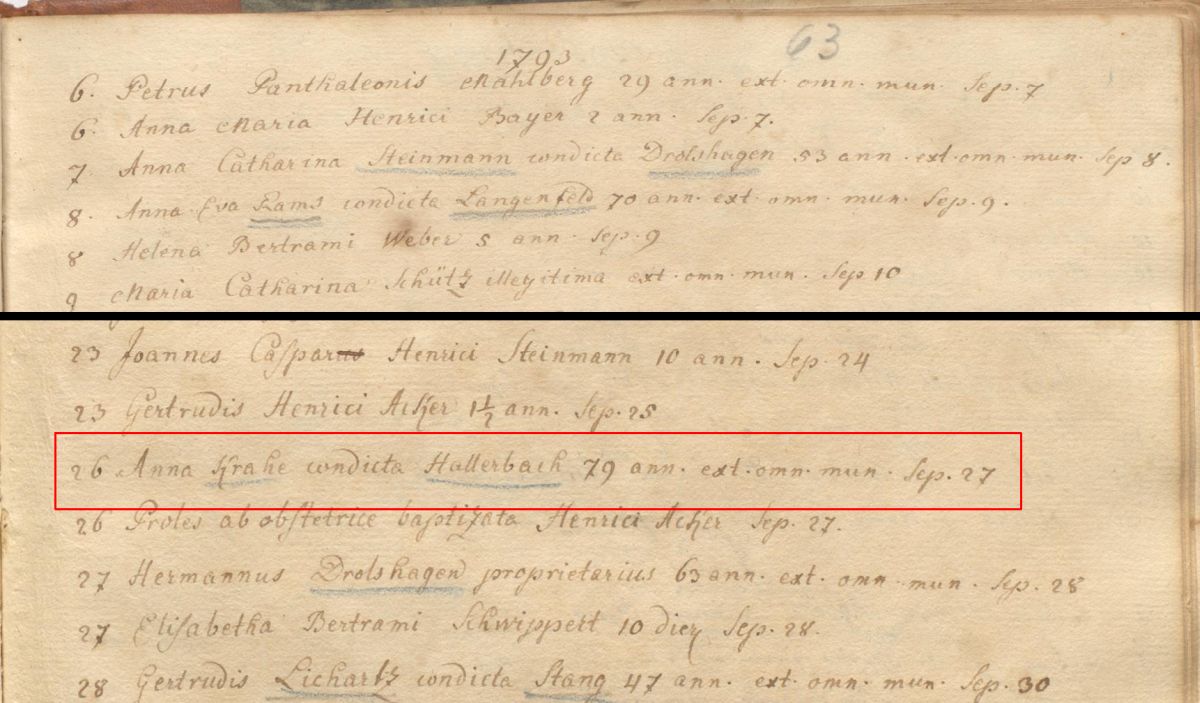 63
1793
6. Petrus Panthaleonis Mahlberg 29 ann. ext. omn. mun. Sep. 7
6. Anna Maria Henrici Bayer 2 ann. Sep. 7.
7 Anna Catharina Steinmann condicta Drolshagen 53 ann. ext. omn. mun. Sep 8.
8. Anna Eva Rams condicta Langenfeld 70 ann. ext. omn. mun. Sep. 9.
8 Helena Bertrami Weber 5 ann. Sep. 9
9 Maria Catharina Schütz illegitima ext. omn. mun. Sep. 10
23 Joannes Caspar Henrici Steinmann 10 ann. Sep. 24
23 Gertrudis Henrici Acker 1½ ann. Sep. 25
26 Anna Krahe condicta Hallerbach 79 ann. ext. omn. mun. Sep. 27
26 Proles ab obstetrice baptizata Henrici Acker Sep. 27.
27 Hermannus Drolshagen proprietarius 63 ann. ext. omn. mun. Sep. 28
27 Elisabetha Bertrami Schwippert 10 dies Sep. 28.
28 Gertrudis Lichartz condicta Stang 47 ann. ext. omn. mun. Sep. 30